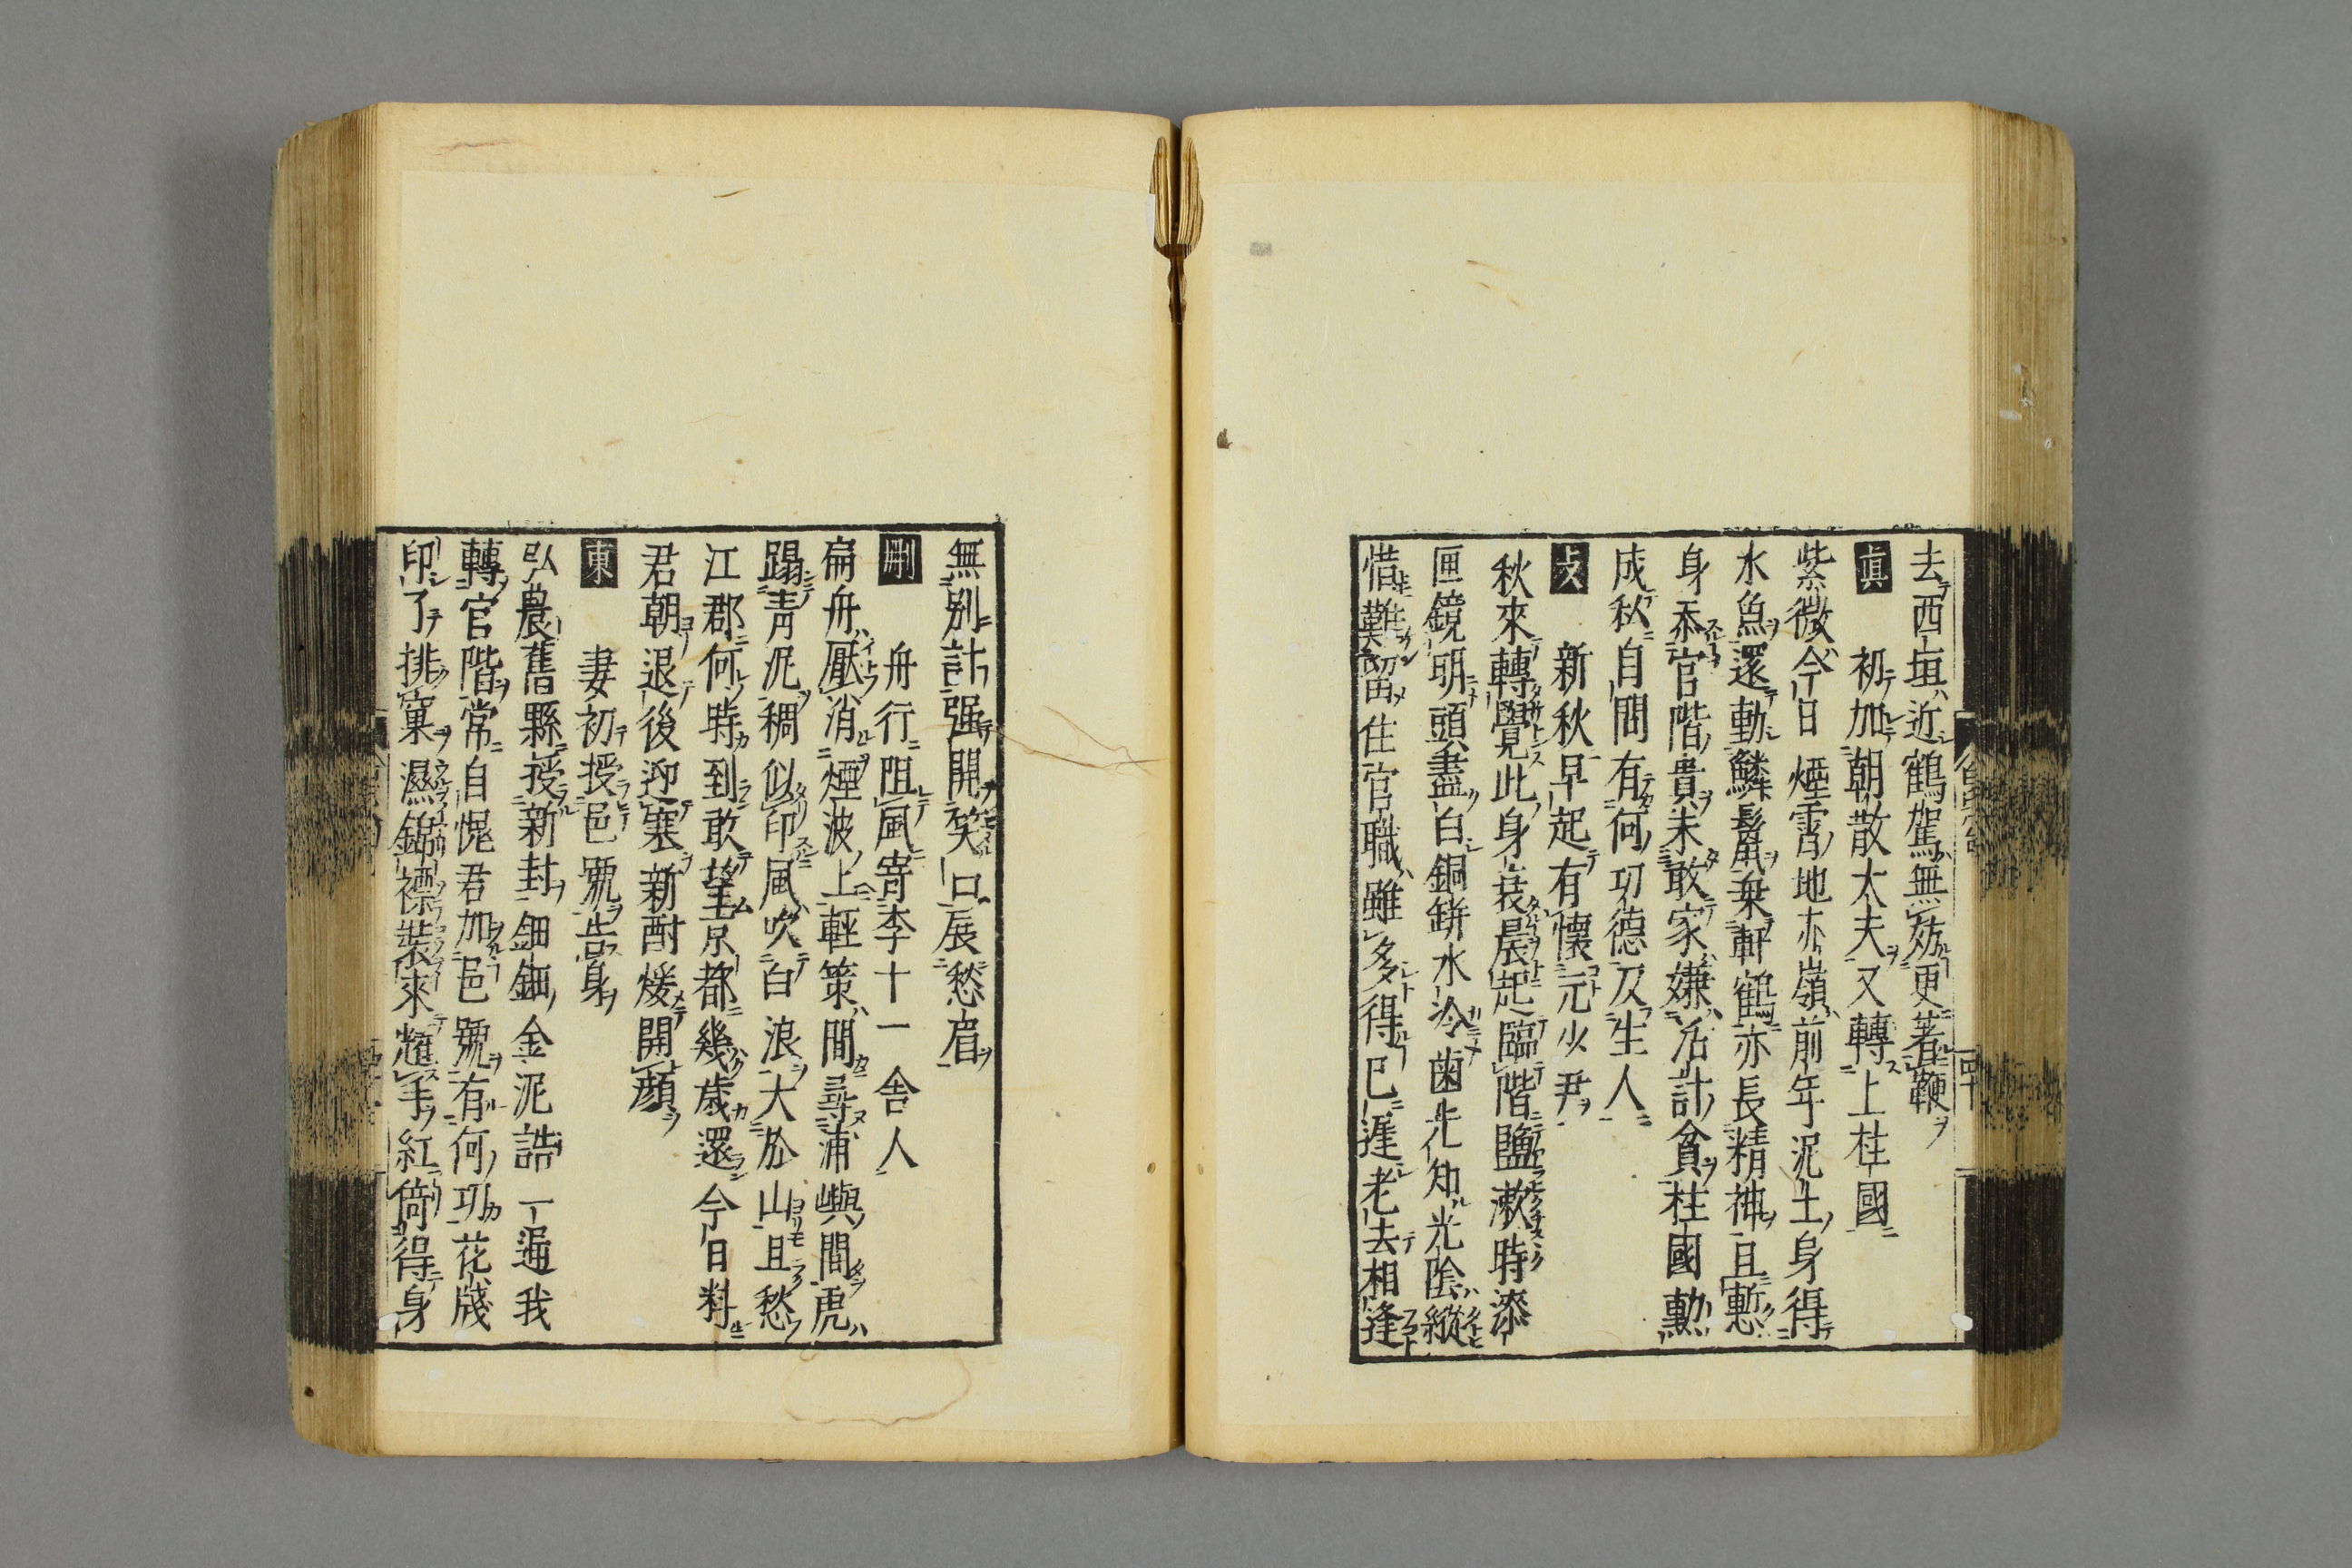 去西垣近鶴駕無妨更著鞭
眞　初加朝散太夫又轉上柱國
紫微今日煙霄地赤嶺前年泥土身得
水魚還動鱗鬣乘軒鶴亦長精神且慙
身忝官階貴未敢家嫌活計貧柱國勳
成私自問有何功德及生人
支　新秋早起有懷元少尹
秋來轉覺此身衰晨起臨階盥漱時漆
匣鏡明頭盡白銅缾水冷齒先知光陰縱
惜難留住官職雖多得已遲老去相逢
無別計强開笑口展愁眉
刪　舟行阻風寄李十一舍人
扁舟厭泊煙波上輕策閒尋浦嶼間虎
蹋靑泥稠似印風吹白浪大於山且愁
江郡何時到敢望京都幾歲還今日料
君朝退後迎寒新酎煖開顔
東　妻初授邑號告身
弘農舊縣授新封鈿軸金泥誥一通我
轉官階常自愧君加邑號有何功花牋
印了排窠濕錦褾裝來耀手紅倚得身